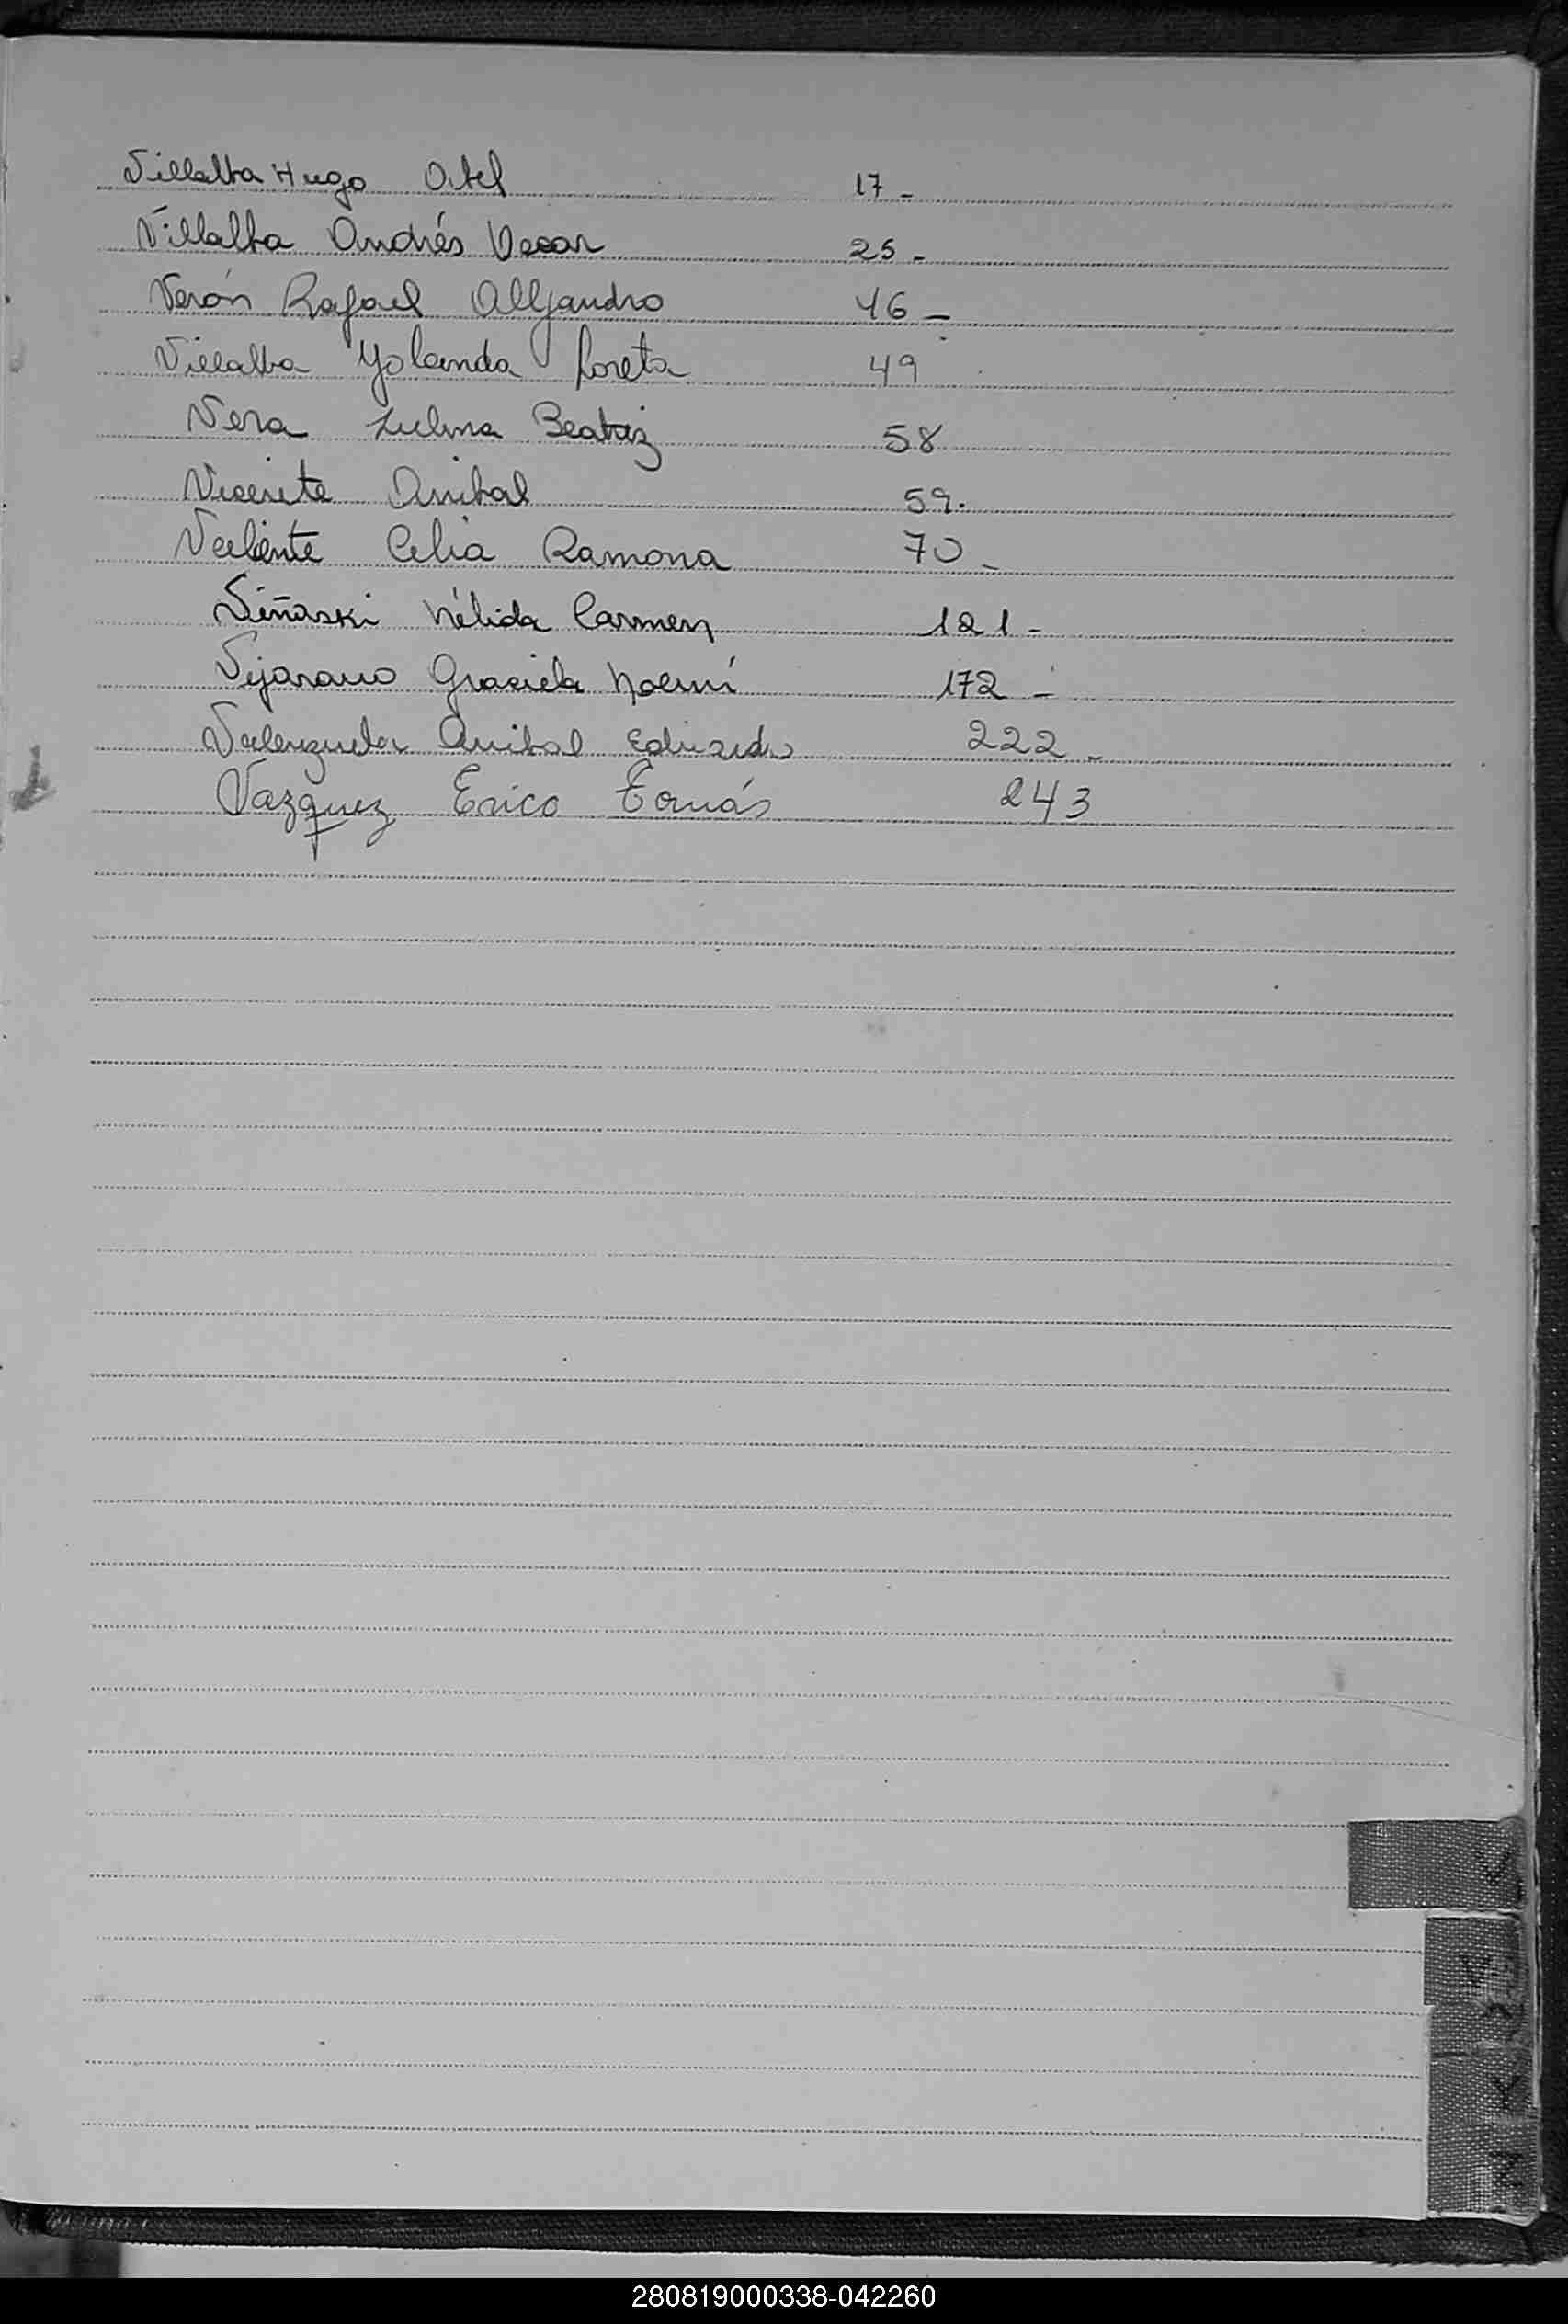 Villalba Hugo 17-
Villalba Andrés 25-
Verón Rafael Alljandro 46-
Villalba Yolanda Loreta 49
Vera Zulma Beatriz 58
Anibal 59.
Valiente Celia Ramona 70-
Nélida Carmen 121-
Vejarano Graciela Noemí 172-
Valenzuela Anibal Eduardo 222-
Vazquez Erico Tomás 243
V
X
Y
Z
280819000338-042260